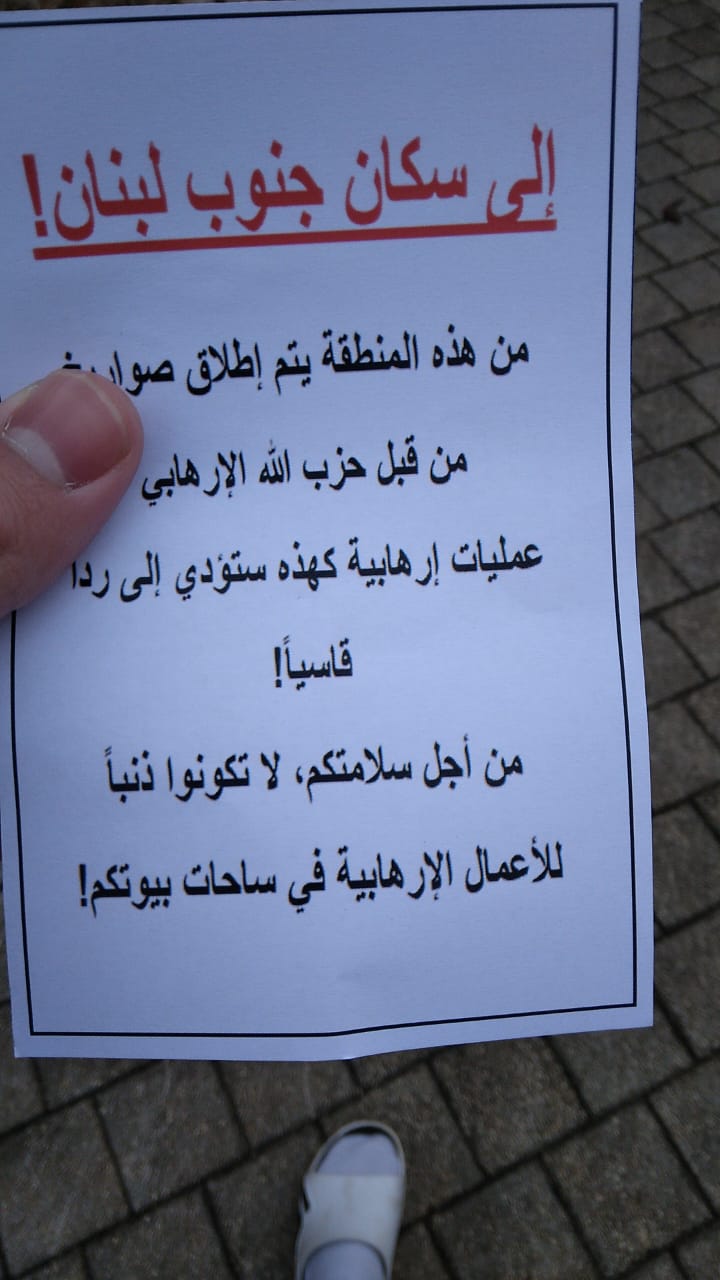 إلى سكان جنوب لبنان!
من هذه المنطقة يتم إطلاق
من قبل حزب الله الإرهابي
عمليات إرهابية كهذه ستؤدي إلى رداً
قاسياً!
من أجل سلامتكم، لا تكونوا ذنباً
للأعمال الإرهابية في ساحات بيوتكم!